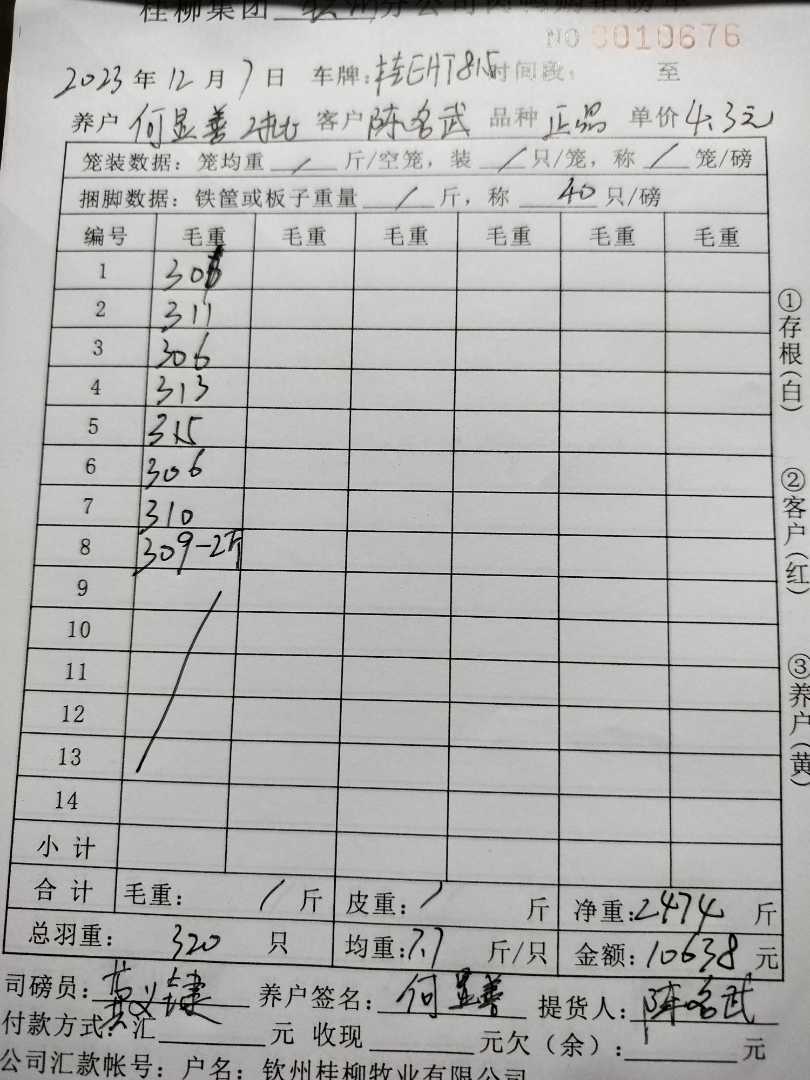 桂柳集团 钦州分公司
NO 3010676
2023年12月7日 车牌:桂EHT815时间段: 至
养户 何显善 2批 客户 陈名武 品种 正品 单价4.3元
笼装数据:笼均重 / 斤/空笼,装 / 只/笼,称 / 笼/磅
捆脚数据:铁筐或板子重量 / 斤,称 40 只/磅
编号 毛重 毛重 毛重 毛重 毛重 毛重
1 306
2 311
3 306
4 313
5 315
6 306
7 310
8 309-2斤
9
10
11
12
13
14
小计
合计 毛重: / 斤 皮重: / 斤 净重:2474 斤
总羽重: 320 只 均重:7.7 斤/只 金额:10638 元
司磅员: 养户签名: 何显善 提货人: 陈名武
付款方式:汇 元 收现 元欠(余): 元
公司汇款帐号: 户名: 钦州桂柳牧业有限公司
①存根(白)
②客户(红)
③养户(黄)